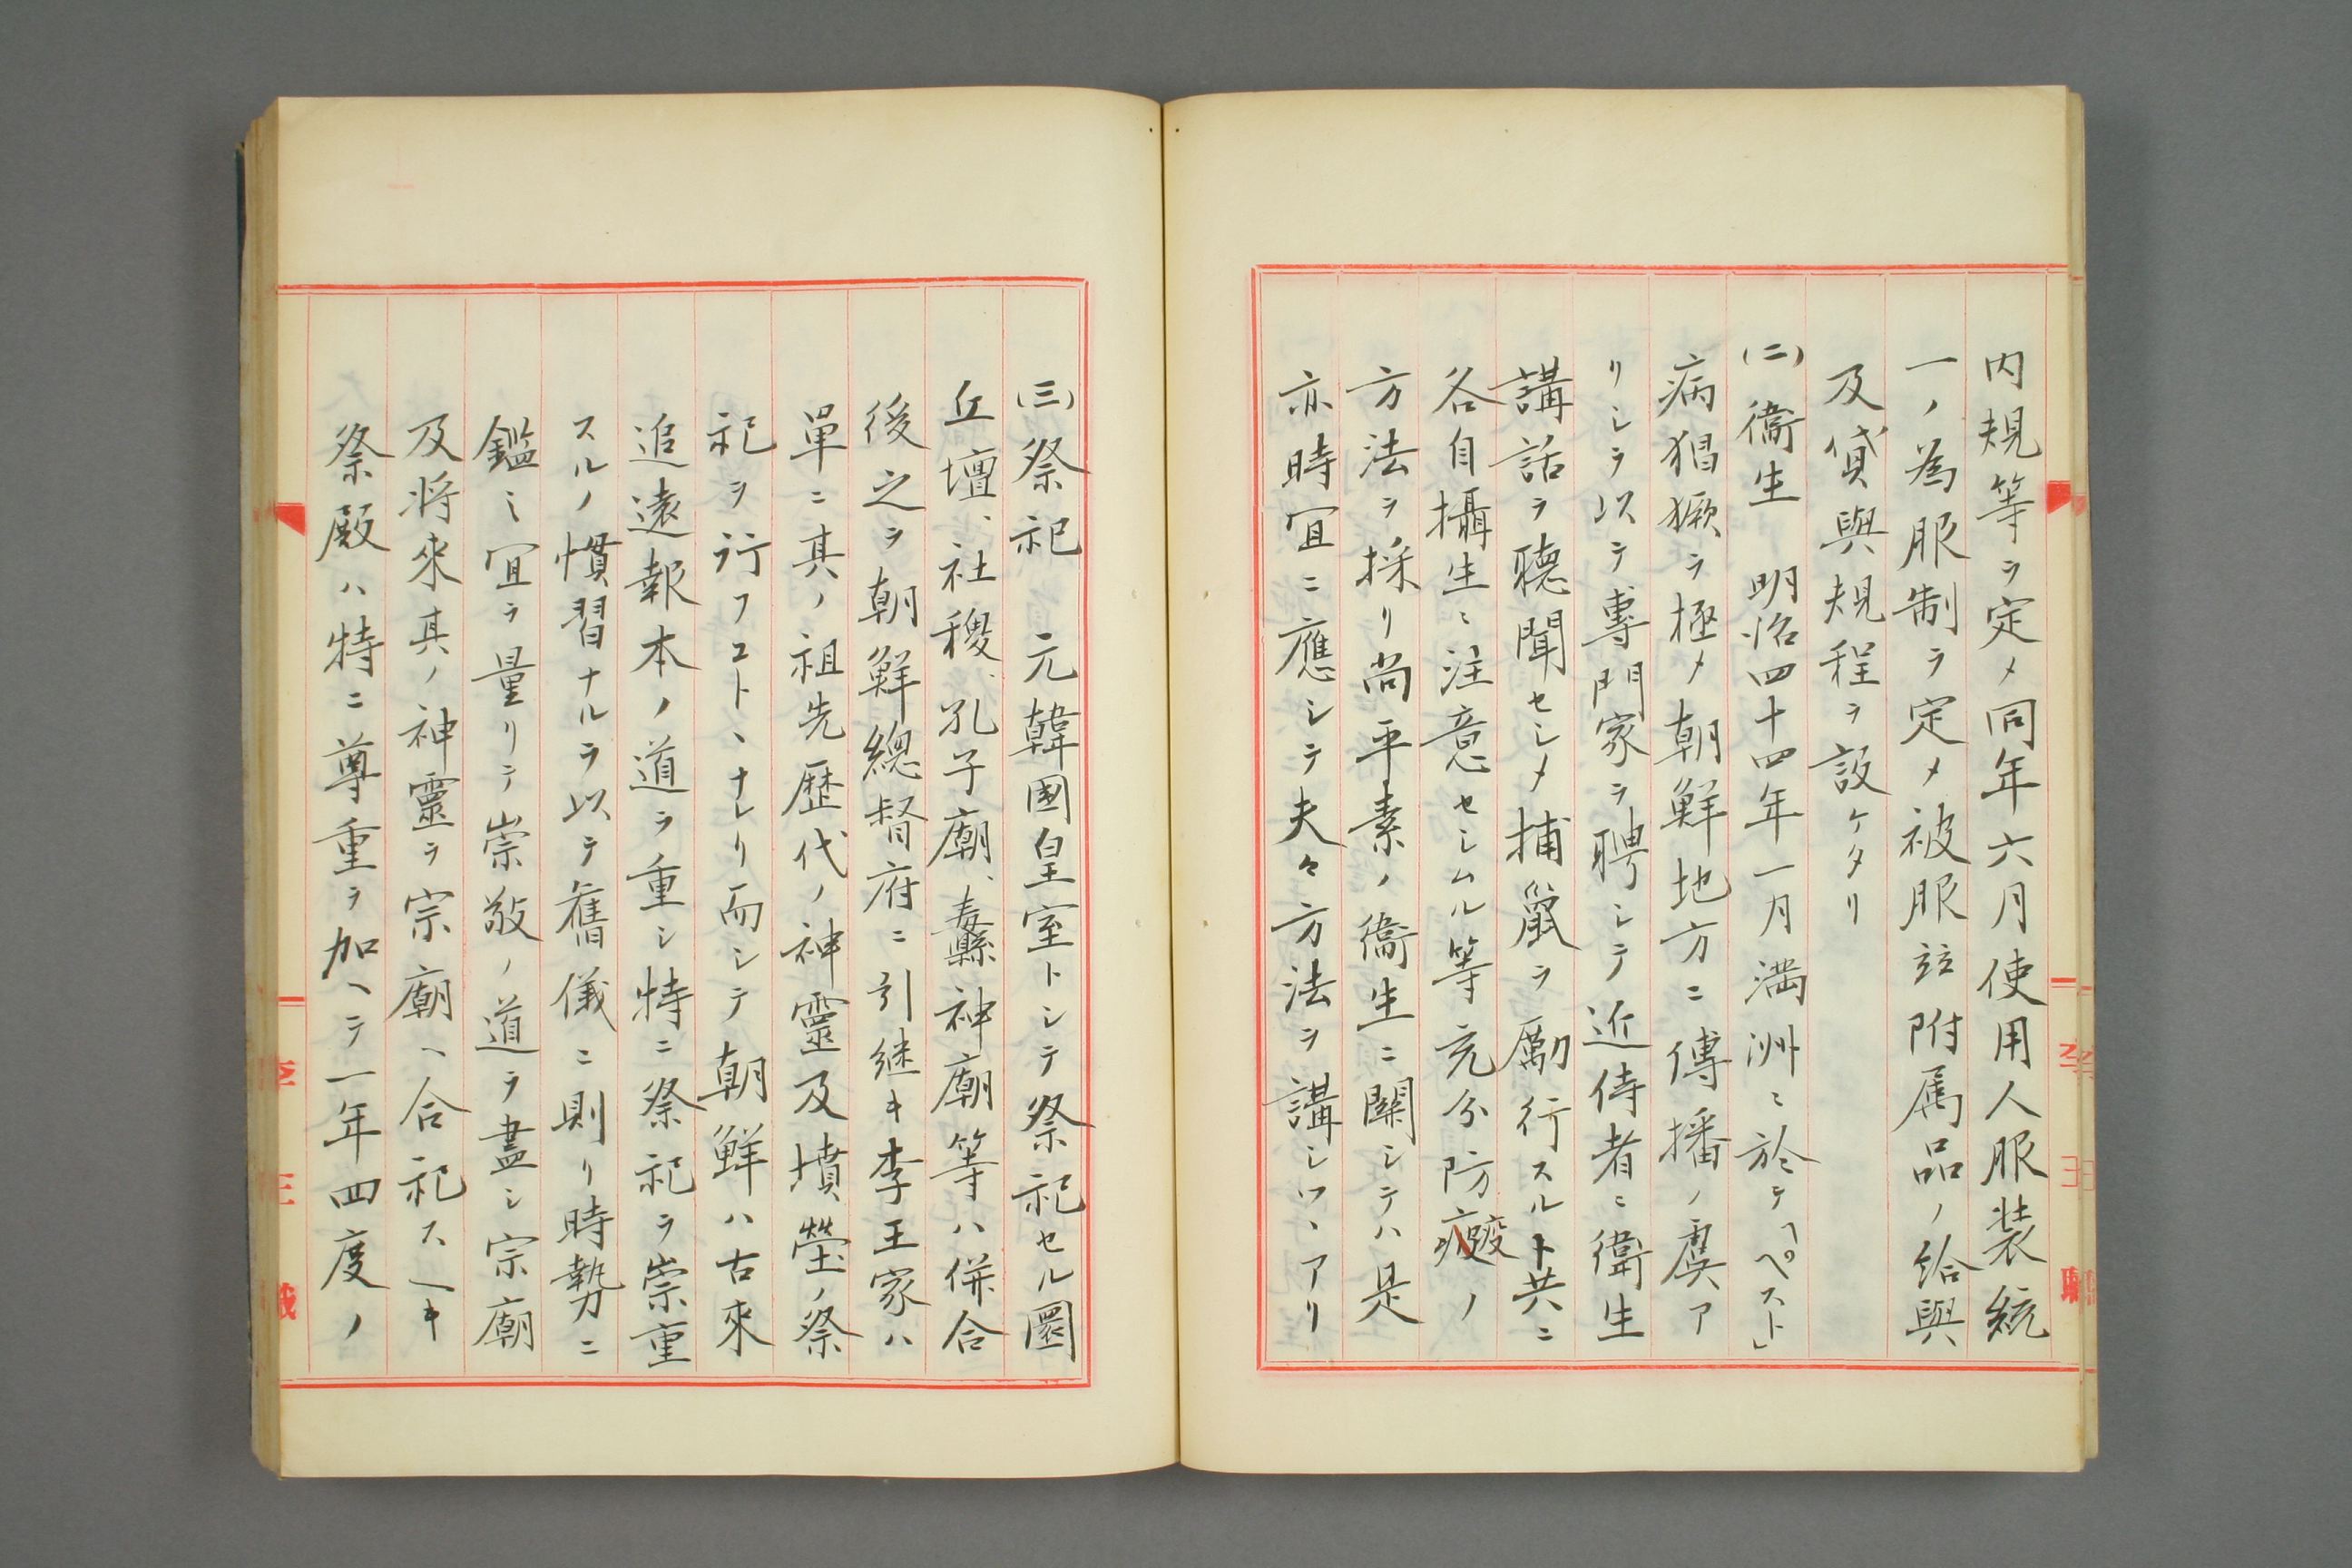 内規等ヲ定メ同年六月使用人服装統
一ノ為服制ヲ定メ被服竝附属品ノ給與
及貸與規程ヲ設ケタリ
(二)衞生 明治四十四年一月満洲ニ於テ「ペスト」
病猖獗ヲ極メ朝鮮地方ニ傳播ノ虞ア
リシヲ以テ專門家ヲ聘シテ近侍者ニ衞生
講話ヲ聴聞セシメ捕鼠ヲ勵行スルト共ニ
各自攝生ニ注意セシムル等充分防疫ノ
方法ヲ採リ尚平素ノ衞生ニ關シテハ是
亦時宜ニ應シテ夫々方法ヲ講シツヽアリ
(三)祭祀 元韓國皇室トシテ祭祀セル圜
丘壇、社稷、孔子廟、纛神廟等ハ併合
後之ヲ朝鮮總督府ニ引継キ李王家ハ
單ニ其ノ祖先歴代ノ神靈及墳塋ノ祭
祀ヲ行フコトヽナレリ而シテ朝鮮ハ古來
追遠報本ノ道ヲ重シ特ニ祭祀ヲ崇重
スルノ慣習ナルヲ以テ舊儀ニ則リ時勢ニ
鑑ミ宜ヲ量リテ崇敬ノ道ヲ盡シ宗廟
及将來其ノ神靈ヲ宗廟ヘ合祀スヘキ
祭殿ハ特ニ尊重ヲ加ヘテ一年四度ノ
李王職